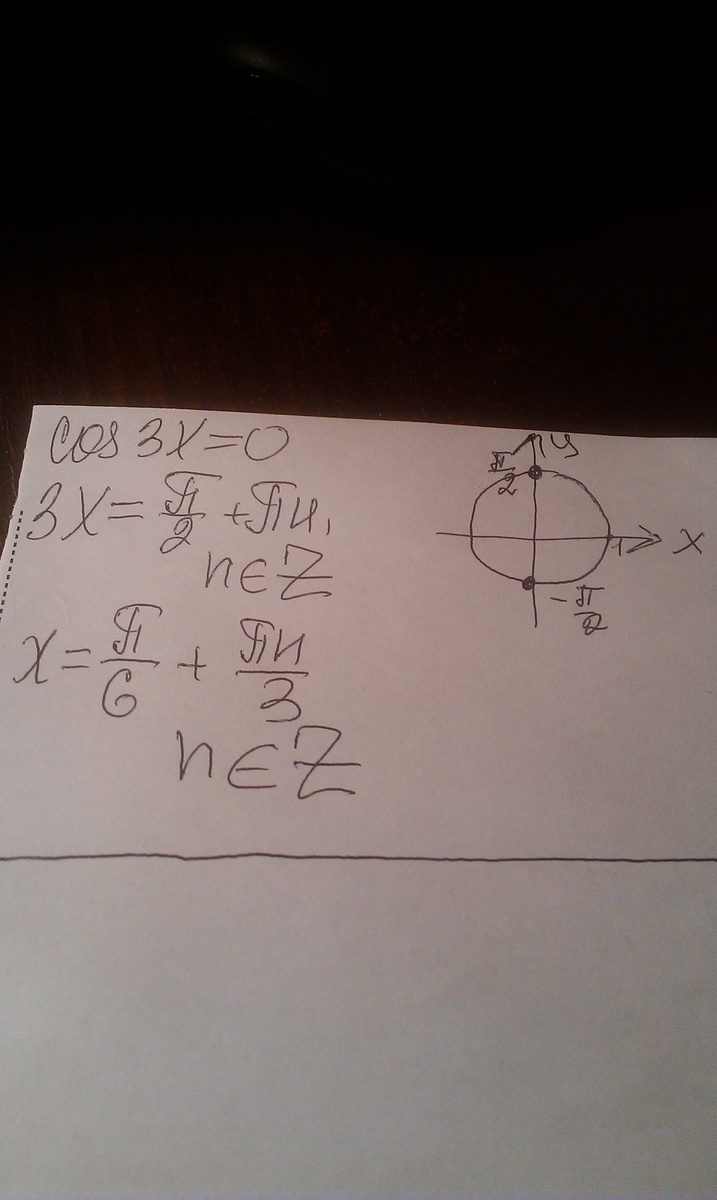 cos 3x = 0
3x = π/2 + πn,
n ∈ Z
x = π/6 + πn/3
n ∈ Z
y
π/2
1
x
-π/2